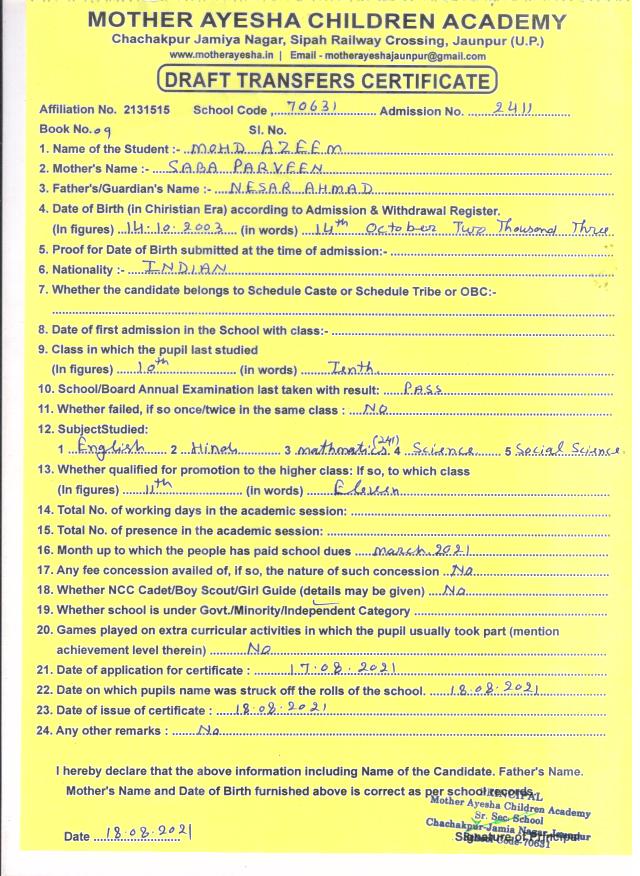 MOTHER AYESHA CHILDREN ACADEMY
Chachakpur Jamiya Nagar, Sipah Railway Crossing, Jaunpur (U.P.)
www.motherayesha.in | Email - motherayeshajaunpur@gmail.com
DRAFT TRANSFERS CERTIFICATE
Affiliation No. 2131515 School Code 70631 Admission No. 2411
Book No. 09 Sl. No.
1. Name of the Student :- MOHD AZEEM
2. Mother's Name :- SABA PARVEEN
3. Father's/Guardian's Name :- NESAR AHMAD
4. Date of Birth (in Chiristian Era) according to Admission & Withdrawal Register.
(In figures) 14.10.2003 (in words) 14th October Two Thousand Three
5. Proof for Date of Birth submitted at the time of admission:-
6. Nationality :- INDIAN
7. Whether the candidate belongs to Schedule Caste or Schedule Tribe or OBC:-
8. Date of first admission in the School with class:-
9. Class in which the pupil last studied
(In figures) 10th (in words) Tenth.
10. School/Board Annual Examination last taken with result: PASS
11. Whether failed, if so once/twice in the same class : NO
12. SubjectStudied:
1 English 2 Hindi 3 mathmatics (241) 4 Science 5 Social Science
13. Whether qualified for promotion to the higher class: If so, to which class
(In figures) 11th (in words) Eleven
14. Total No. of working days in the academic session:
15. Total No. of presence in the academic session:
16. Month up to which the people has paid school dues march. 2021
17. Any fee concession availed of, if so, the nature of such concession No
18. Whether NCC Cadet/Boy Scout/Girl Guide (details may be given) No
19. Whether school is under Govt./Minority/Independent Category
20. Games played on extra curricular activities in which the pupil usually took part (mention
achievement level therein) No
21. Date of application for certificate : 17.08.2021
22. Date on which pupils name was struck off the rolls of the school. 18.08.2021
23. Date of issue of certificate : 18.08.2021
24. Any other remarks : No
I hereby declare that the above information including Name of the Candidate. Father's Name.
Mother's Name and Date of Birth furnished above is correct as per school records
PRINCIPAL
Mother Ayesha Children Academy
Sr. Sec. School
Chachakpur-Jamia Nagar Jaunpur
School Code-70631
Date 18.08.2021 Signature of Principal